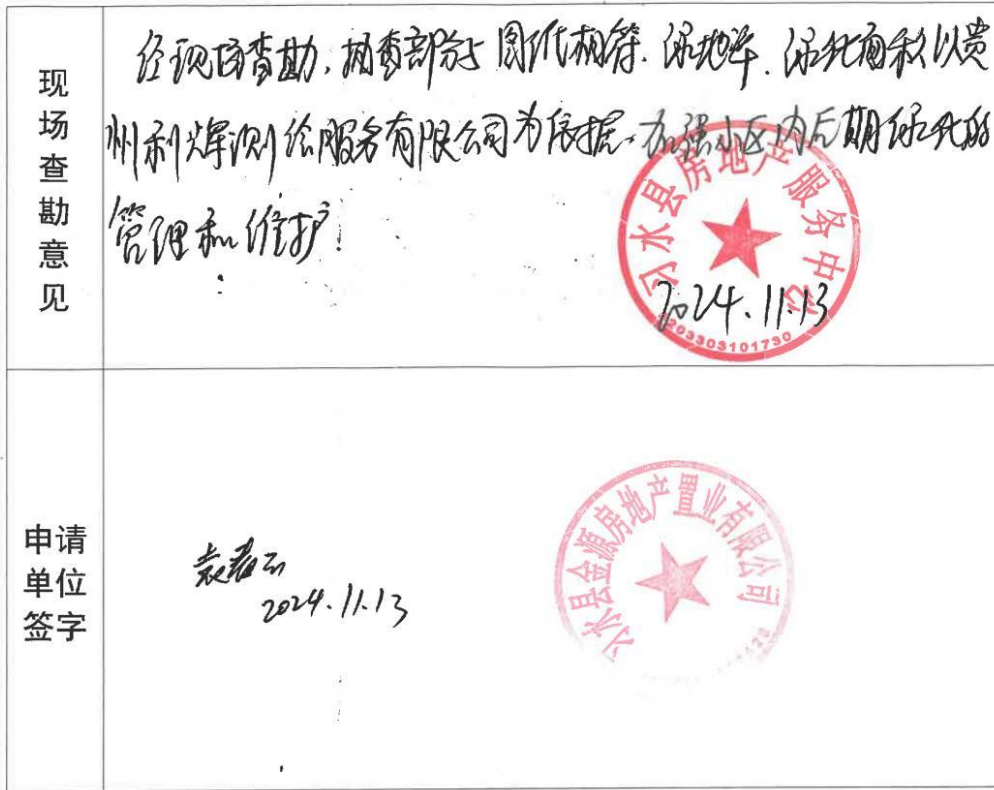 现场查勘意见
经现场查勘,抽查部分与图纸相符.绿地率.绿化面积以贵
州利辉测绘服务有限公司为依据.加强小区内后期绿化的
管理和维护!
习水县房地产服务中心
2024.11.13
203303101730
申请
单位
签字
2024.11.13
习水县金源房地产置业有限公司